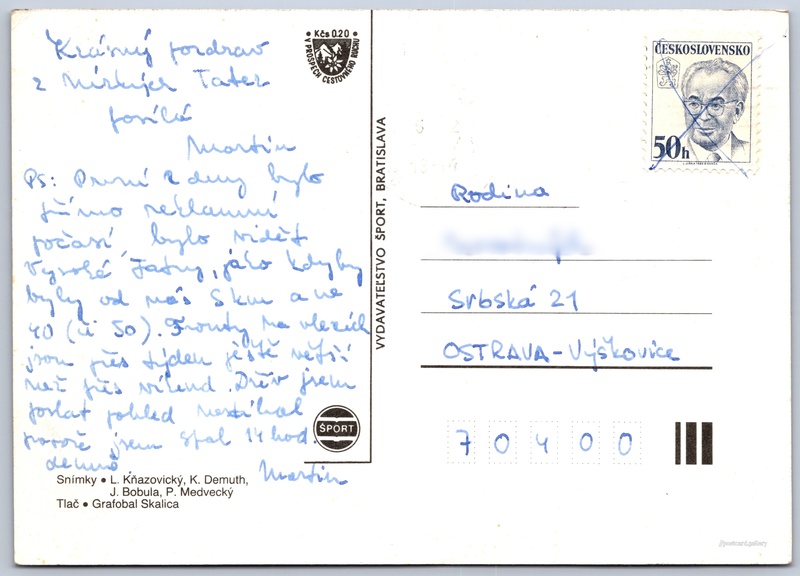 Krásný pozdrav
z Nízkých Tater
posílá
Martin
PS: První 2 dny bylo
přímo reklamní
počasí bylo vidět
Vysoké Tatry, jako kdyby
byly od nás 5 km a ne
40 (či 50). Fronty na vlecích
jsou přes týden ještě větší
než přes víkend. Dřív jsem
poslat pohled nestíhal
protože jsem spal 14 hod.
denně.
Martin
Kčs 0.20
V PROSPĚCH CESTOVNÉHO RUCHU
VYDAVATEĽSTVO ŠPORT, BRATISLAVA
ŠPORT
Snímky • L. Kňazovický, K. Demuth,
J. Bobula, P. Medvecký
Tlač • Grafobal Skalica
ČESKOSLOVENSKO
50h
Rodina
Srbská 21
OSTRAVA-Výškovice
70400